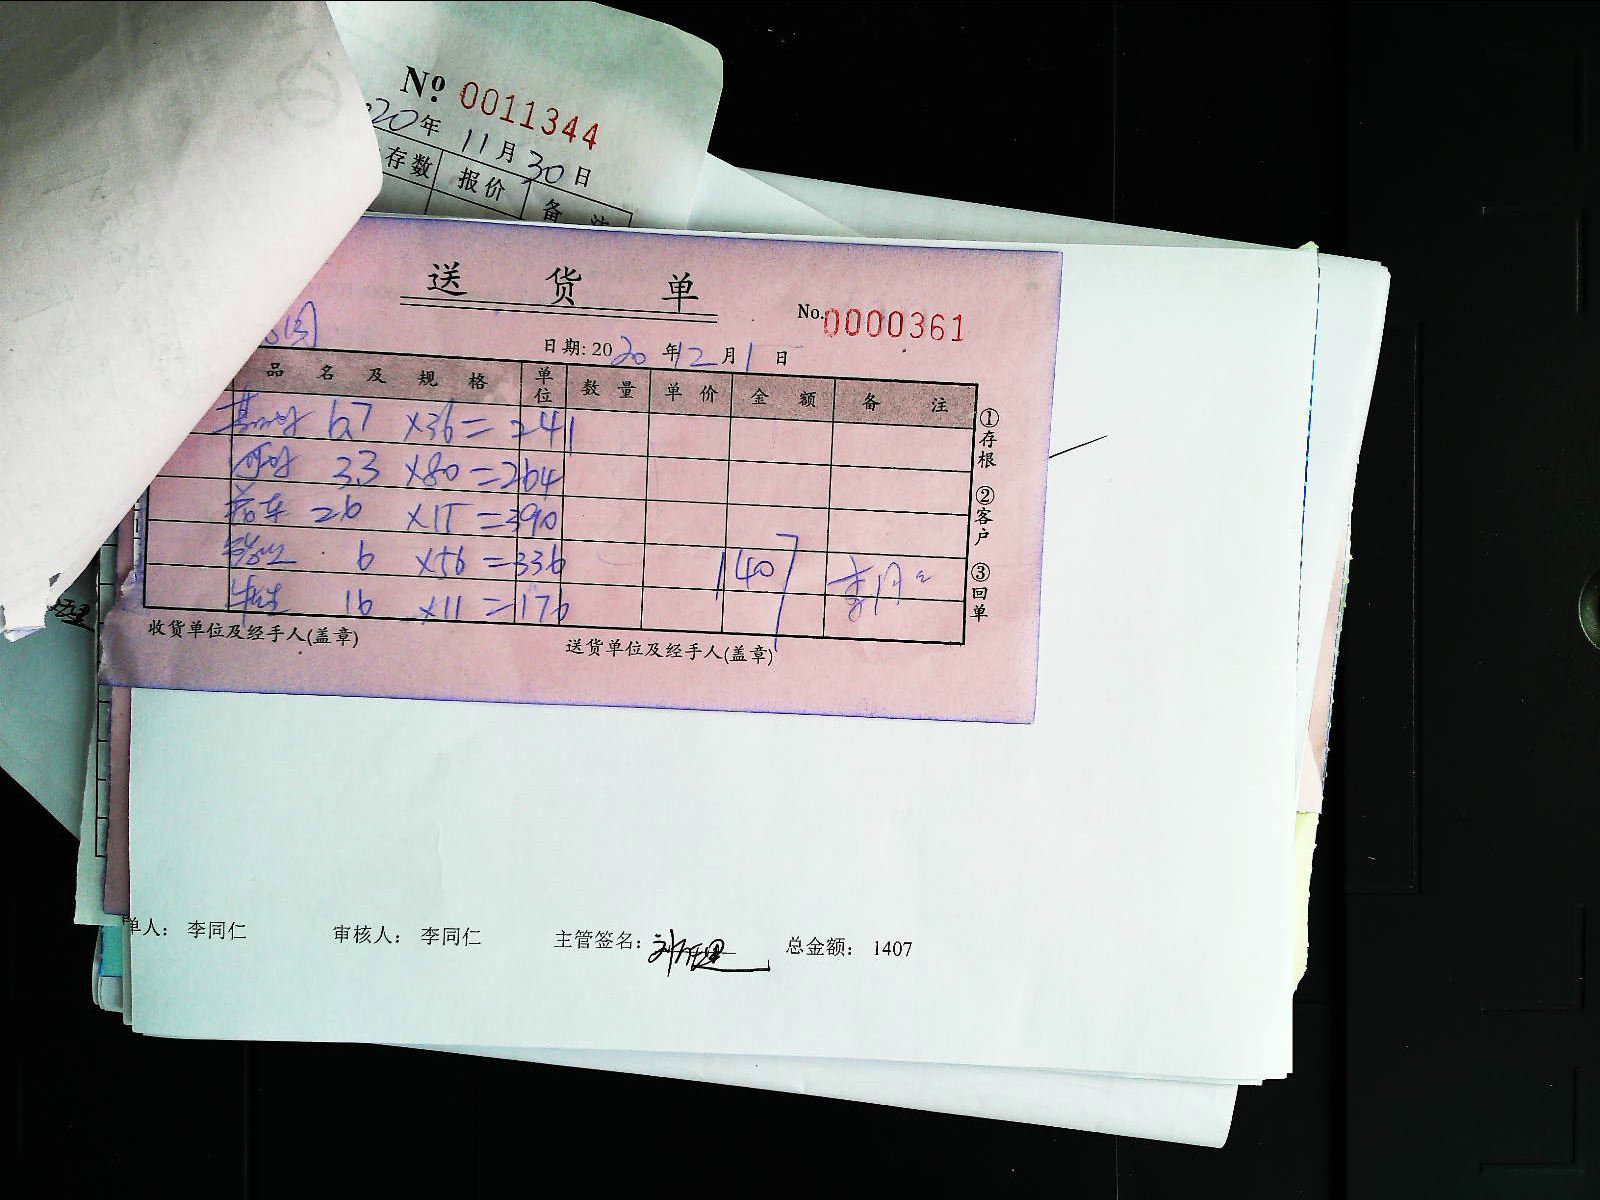 No. 0011344
20年 11月 30日
存数 报价 备注
送货单
No. 0000361
日期: 2020年12月1日
品名及规格 单位 数量 单价 金额 备注
6.7 ×36= 241
3.3 ×80=264
26 ×15=390
6 ×56=336
16 ×11=176
1407
①存根 ②客户 ③回单
收货单位及经手人(盖章) 送货单位及经手人(盖章)
单人: 李同仁 审核人: 李同仁 主管签名: 总金额: 1407